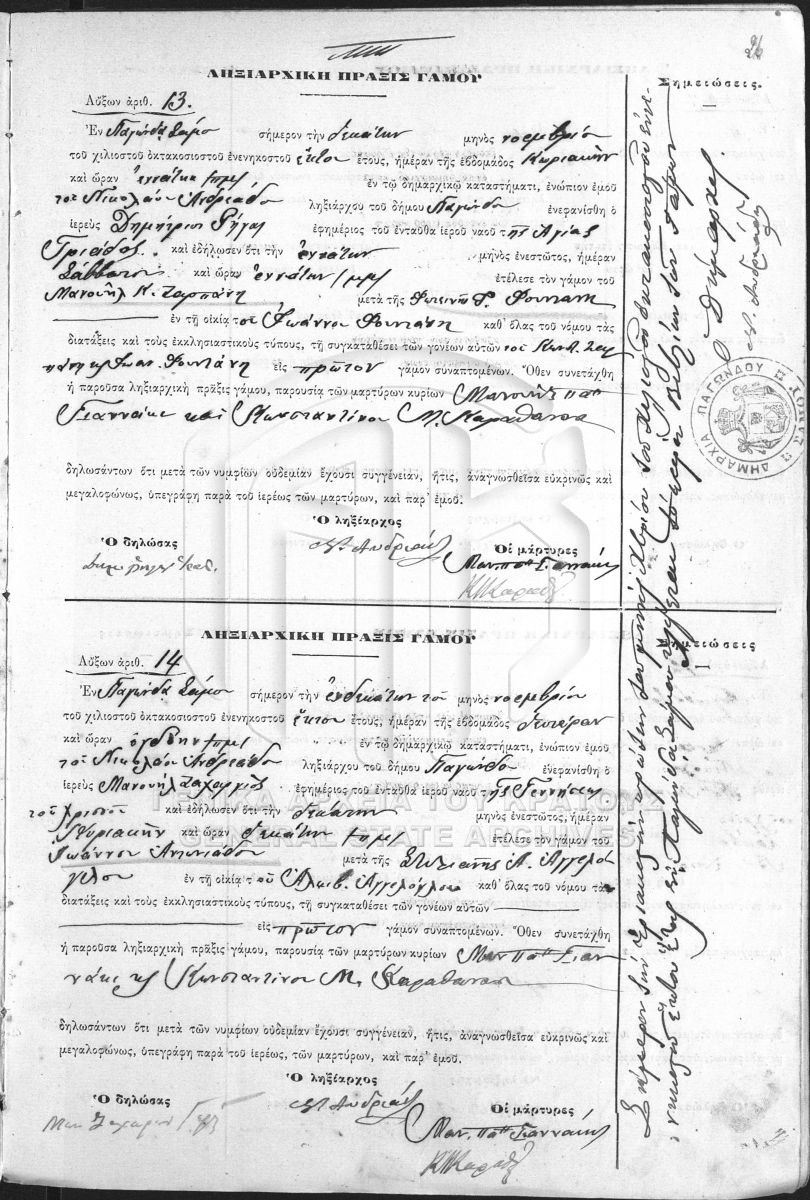 26
ΛΗΞΙΑΡΧΙΚΗ ΠΡΑΞΙΣ ΓΑΜΟΥ
Σημειώσεις.
Αὔξων ἀριθ. 13.
Ἐν Παγώνδα Σάμου σήμερον τὴν δεκάτην μηνὸς νοεμβρίου
τοῦ χιλιοστοῦ ὀκτακοσιοστοῦ ἐνενηκοστοῦ ἕκτου ἔτους, ἡμέραν τῆς ἑβδομάδος Κυριακὴν
καὶ ὥραν ἐννάτην πμ ἐν τῷ δημαρχικῷ καταστήματι, ἐνώπιον ἐμοῦ
τοῦ Νικολάου Ἀνδριάδου ληξιάρχου τοῦ δήμου Παγώνδου ἐνεφανίσθη ὁ
ἱερεὺς Δημήτριος Ρήγας ἐφημέριος τοῦ ἐνταῦθα ἱεροῦ ναοῦ τῆς Ἁγίας
Τριάδος. καὶ ἐδήλωσεν ὅτι τὴν ἐννάτην μηνὸς ἐνεστῶτος, ἡμέραν
Σάββατον καὶ ὥραν ἐννάτην μμ ἐτέλεσε τὸν γάμον τοῦ
Μανουὴλ Κ. Ζαρπάνη μετὰ τῆς Φωτεινῆς Ι. Φουντάνη
ἐν τῇ οἰκίᾳ τοῦ Ἰωάννου Φουντάνη καθ᾽ ὅλας τοῦ νόμου τὰς
διατάξεις καὶ τοὺς ἐκκλησιαστικοὺς τύπους, τῇ συγκαταθέσει τῶν γονέων αὐτῶν τοῦ Κωνστ. Ζαρ
πάνη κ Ἰωαν. Φουντάνη εἰς πρῶτον γάμον συναπτομένων. Ὅθεν συνετάχθη
ἡ παροῦσα ληξιαρχικὴ πρᾶξις γάμου, παρουσίᾳ τῶν μαρτύρων κυρίων Μανουὴλ παπ
Γιαννάκη καὶ Κωνσταντίνου Μ. Καραθάνου
δηλωσάντων ὅτι μετὰ τῶν νυμφίων οὐδεμίαν ἔχουσι συγγένειαν, ἥτις, ἀναγνωσθεῖσα εὐκρινῶς καὶ
μεγαλοφώνως, ὑπεγράφη παρὰ τοῦ ἱερέως τῶν μαρτύρων, καὶ παρ᾽ ἐμοῦ.
Ὁ ληξίαρχος
Ὁ δηλώσας
Οἱ μάρτυρες
Ν. Ἀνδριάδης
Μαν. παπ Γιαννάκης
ΛΗΞΙΑΡΧΙΚΗ ΠΡΑΞΙΣ ΓΑΜΟΥ
Σημειώσεις
Αὔξων ἀριθ. 14
Ἐν Παγώνδα Σάμου σήμερον τὴν ἑνδεκάτην τοῦ μηνὸς νοεμβρίου
τοῦ χιλιοστοῦ ὀκτακοσιοστοῦ ἐνενηκοστοῦ ἕκτου ἔτους, ἡμέραν τῆς ἑβδομάδος Δευτέραν
καὶ ὥραν ὀγδόην πμ ἐν τῷ δημαρχικῷ καταστήματι, ἐνώπιον ἐμοῦ
τοῦ Νικολάου Ἀνδριάδου ληξιάρχου τοῦ δήμου Παγώνδου ἐνεφανίσθη ὁ
ἱερεὺς Μανουὴλ Ζαχαρίου ἐφημέριος τοῦ ἐνταῦθα ἱεροῦ ναοῦ τῆς Γεννήσεως
τοῦ Χριστοῦ καὶ ἐδήλωσεν ὅτι τὴν δεκάτην μηνὸς ἐνεστῶτος, ἡμέραν
Κυριακὴν καὶ ὥραν δεκάτην πμ ἐτέλεσε τὸν γάμον τοῦ
Ἰωάννου Ἀντωνιάδου μετὰ τῆς Στυλιανῆς Α. Ἀγγελό
γλου ἐν τῇ οἰκίᾳ τοῦ Ἀλκιβ. Ἀγγελόγλου καθ᾽ ὅλας τοῦ νόμου τὰς
διατάξεις καὶ τοὺς ἐκκλησιαστικοὺς τύπους, τῇ συγκαταθέσει τῶν γονέων αὐτῶν
εἰς πρῶτον γάμον συναπτομένων. Ὅθεν συνετάχθη
ἡ παροῦσα ληξιαρχικὴ πρᾶξις γάμου, παρουσίᾳ τῶν μαρτύρων κυρίων Μαν παπ Γιαν
νάκη κ Κωνσταντίνου Μ. Καραθάνου
δηλωσάντων ὅτι μετὰ τῶν νυμφίων οὐδεμίαν ἔχουσι συγγένειαν, ἥτις, ἀναγνωσθεῖσα εὐκρινῶς καὶ
μεγαλοφώνως, ὑπεγράφη παρὰ τοῦ ἱερέως, τῶν μαρτύρων, καὶ παρ᾽ ἐμοῦ.
Ὁ ληξίαρχος
Ὁ δηλώσας
Οἱ μάρτυρες
Ν. Ἀνδριάδης
Μαν. παπ Γιαννάκης
Σήμερον τὴν Κυριακὴν πρώτην τοῦ μηνὸς
Ὁ Δήμαρχος
ΔΗΜΑΡΧΙΑ ΠΑΓΩΝΔΟΥ
ΓΕΝΙΚΑ ΑΡΧΕΙΑ ΤΟΥ ΚΡΑΤΟΥΣ
GENERAL STATE ARCHIVES